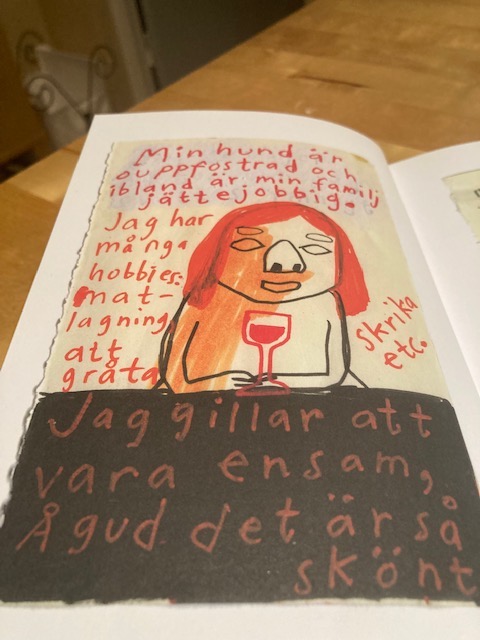 Min hund är
ouppfostrad och
ibland är min familj
jättejobbig.
Jag har
många
hobbies:
mat-
lagning,
att
gråta
skrika
etc.
Jag gillar att
vara ensam,
Å gud det är så
skönt